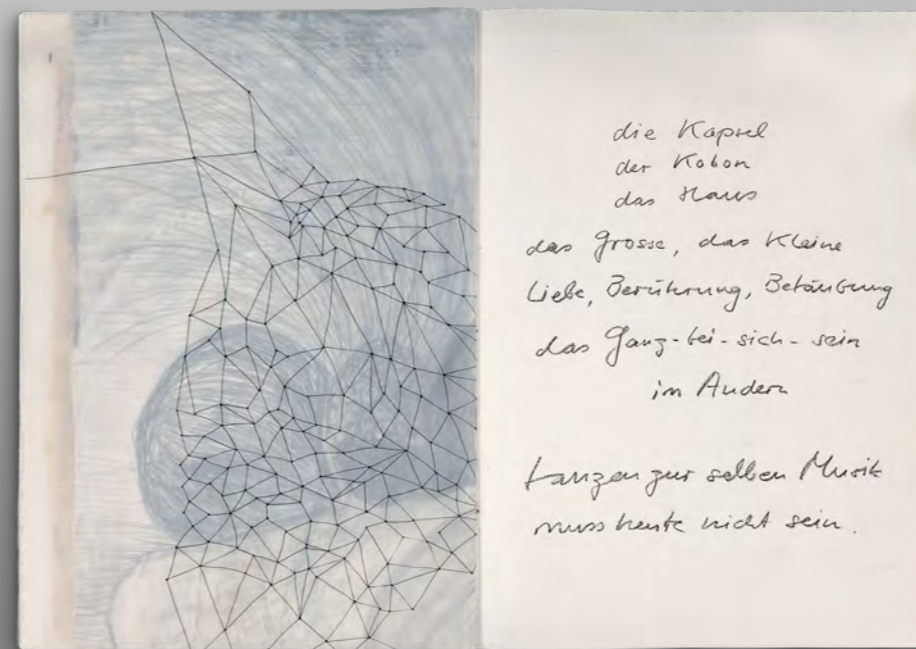 die Kapsel
der Kokon
das Haus
das Grosse, das Kleine
Liebe, Berührung, Betäubung
das Ganz-bei-sich-sein
im Andern
tanzen zur selben Musik
muss heute nicht sein.